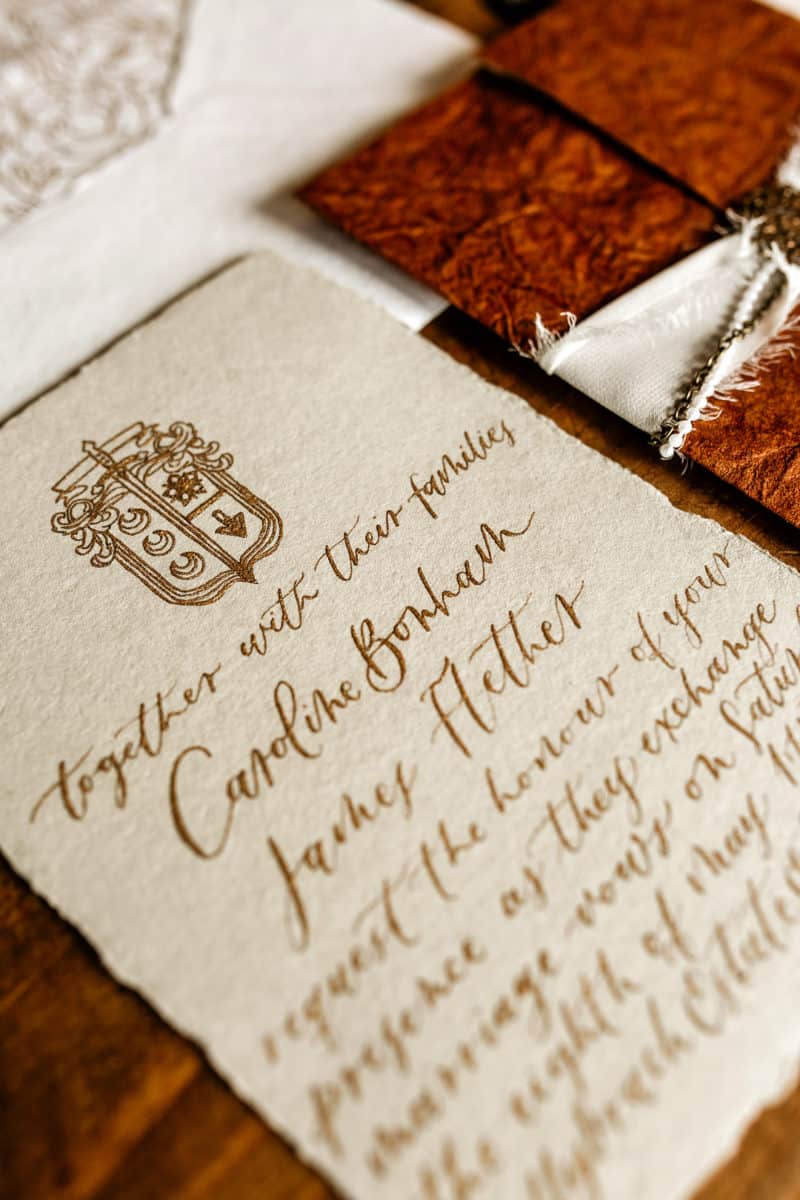 together with their families
Caroline Bonham
James Flether
request the honour of your
presence as they exchange
marriage vows on
the eighth of may
Estate